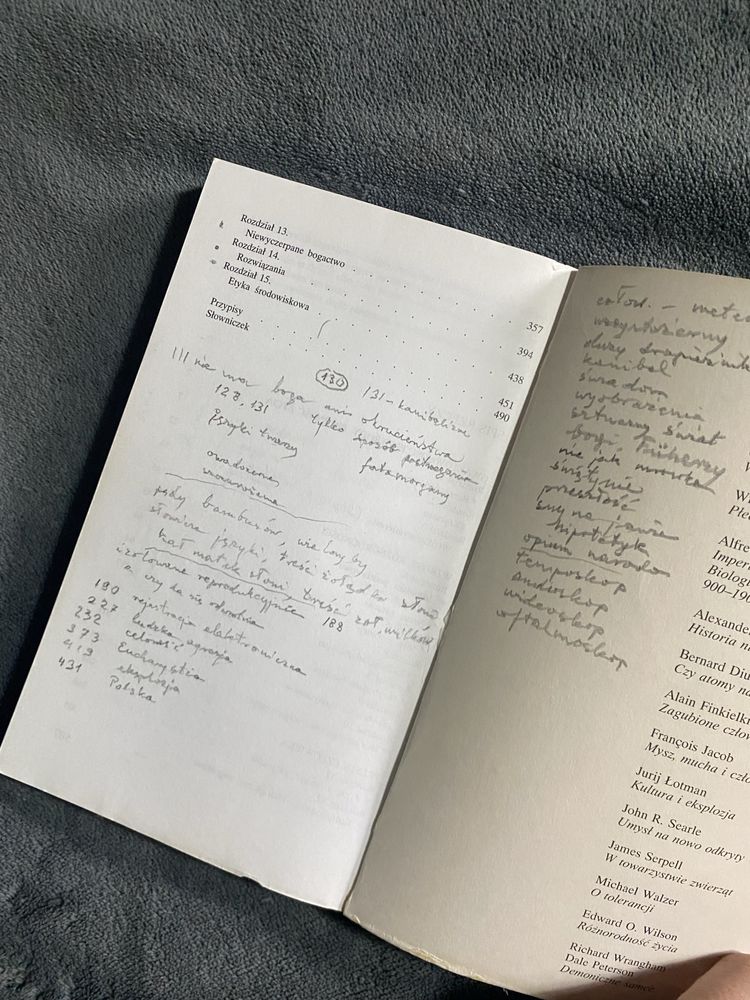 Rozdział 13.
Niewyczerpane bogactwo . . . . . . . . 357
Rozdział 14.
Rozwiązania . . . . . . . . 394
Rozdział 15.
Etyka środowiskowa . . . . . . . . 438
Przypisy . . . . . . . . 451
Słowniczek . . . . . . . . 490
130 131 - kanibalizm
III nie ma boga ani okrucieństwa
128, 131 tylko sposób postrzegania
języki twarzy fatamorgany
owadożerne
pędy bambusów, wieloryby
słowicze języki, treść żołądka słoni
kał matek słoni, treść żoł. wilków
izolowane reprodukcyjnie 188
a czy da się odwolnia
180 rejestracja elektroniczna
227 ludzka agresja
232 celowość
373 Eucharystia
419 eksplozja
431 Polska
człow. -
wszystkożerny
duży drapieżnik
kanibal
świadom
wyobrażenia
sztuczny świat
bogi, Führerzy
nie jak mrówka
świątynie
przeszłość
sny na jawie
hipotetyk
opium narodo
temposkop
audioskop
wideoskop
oftalmoskop
Alfre
Imper
Biolog
900–190
Alexande
Historia na
Bernard Diu
Czy atomy na
Alain Finkielkr
Zagubione człow
François Jacob
Mysz, mucha i czło
Jurij Łotman
Kultura i eksplozja
John R. Searle
Umysł na nowo odkryty
James Serpell
W towarzystwie zwierząt
Michael Walzer
O tolerancji
Edward O. Wilson
Różnorodność życia
Richard Wrangham
Dale Peterson
Demoniczne samce.